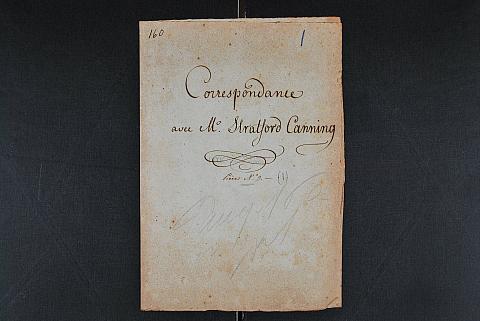 160
1
Correspondance
avec Mr. Stratford Canning
(1)